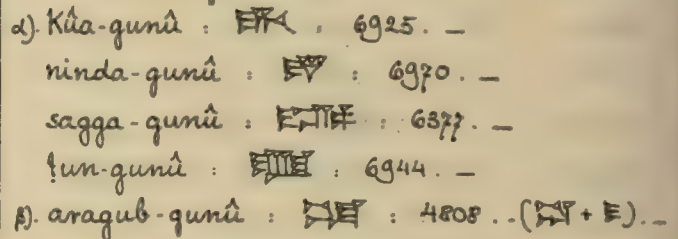 α). Kûa-gunû : : 6925. —
ninda-gunû : : 6970. —
sagga-gunû : : 6377. —
ṭun-gunû : : 6944. —
β). aragub-gunû : : 4808 .. ( + ). —